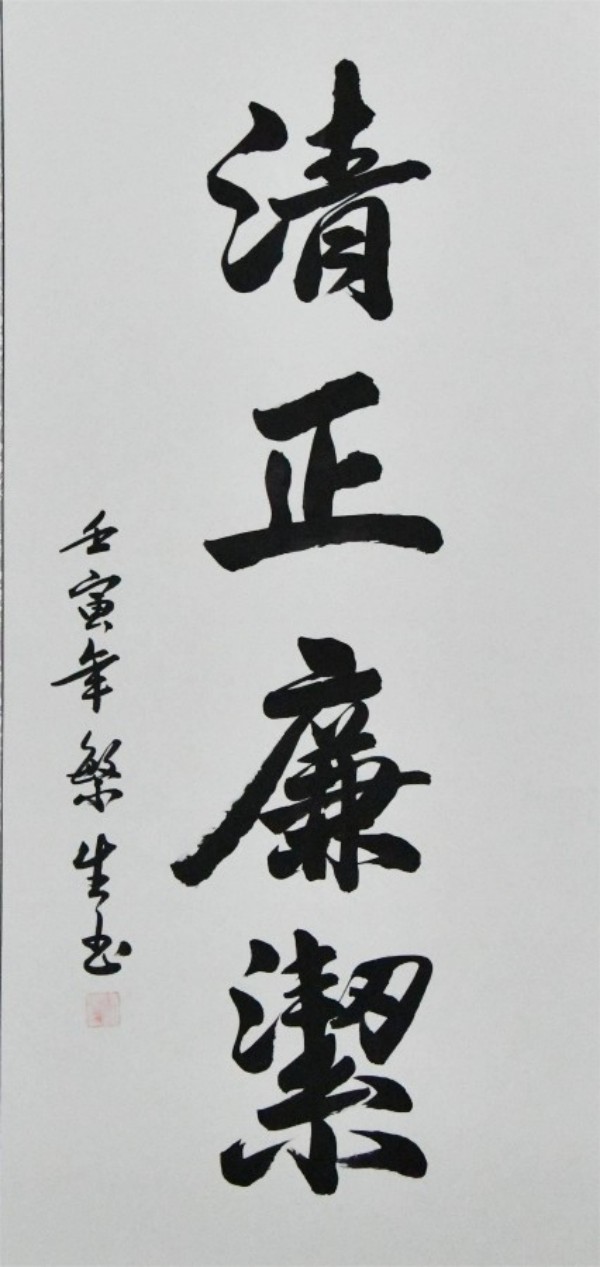 清正廉潔
壬寅年繁生书